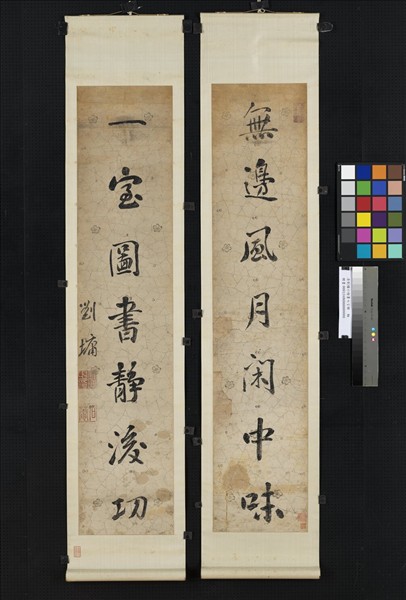 無邊風月閑中味
一室圖書靜後功
劉墉